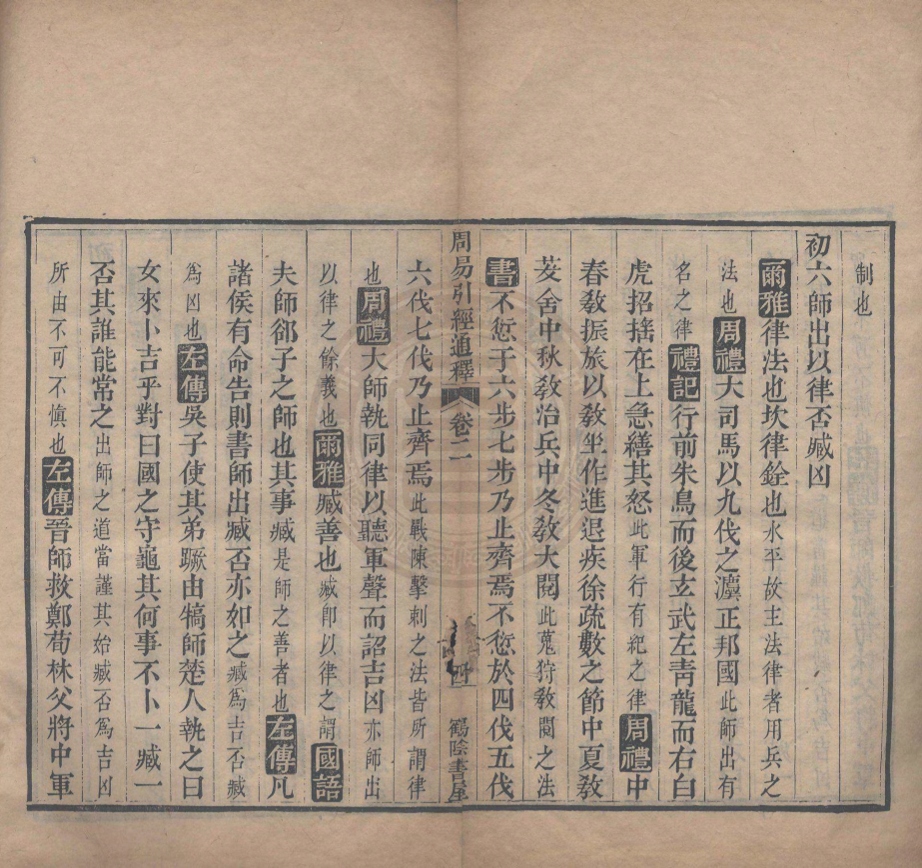 制也
初六師出以律否臧凶
爾雅律法也坎律銓也水平故主法律者用兵之
法也周禮大司馬以九伐之灋正邦國此師出有
名之律禮記行前朱鳥而後玄武左青龍而右白
虎招搖在上急繕其怒此軍行有紀之律周禮中
春教振旅以教坐作進退疾徐疏數之節中夏教
茇舍中秋教冶兵中冬教大閱此蒐狩教閱之法
書不愆于六步七步乃止齊焉不愆於四伐五伐
周易引經通釋
卷二
鶴陰書屋
六伐七伐乃止齊焉此戰陳擊刺之法皆所謂律
也周禮大師執同律以聽軍聲而詔吉凶亦師出
以律之餘義也爾雅臧善也臧卽以律之謂國語
夫師郤子之師也其事臧是師之善者也左傳凡
諸侯有命告則書師出臧否亦如之臧爲吉否臧
爲凶也左傳吳子使其弟蹶由犒師楚人執之曰
女來卜吉乎對曰國之守龜其何事不卜一臧一
否其誰能常之出師之道當謹其始臧否爲吉凶
所由不可不慎也左傳晉師救鄭荀林父將中軍